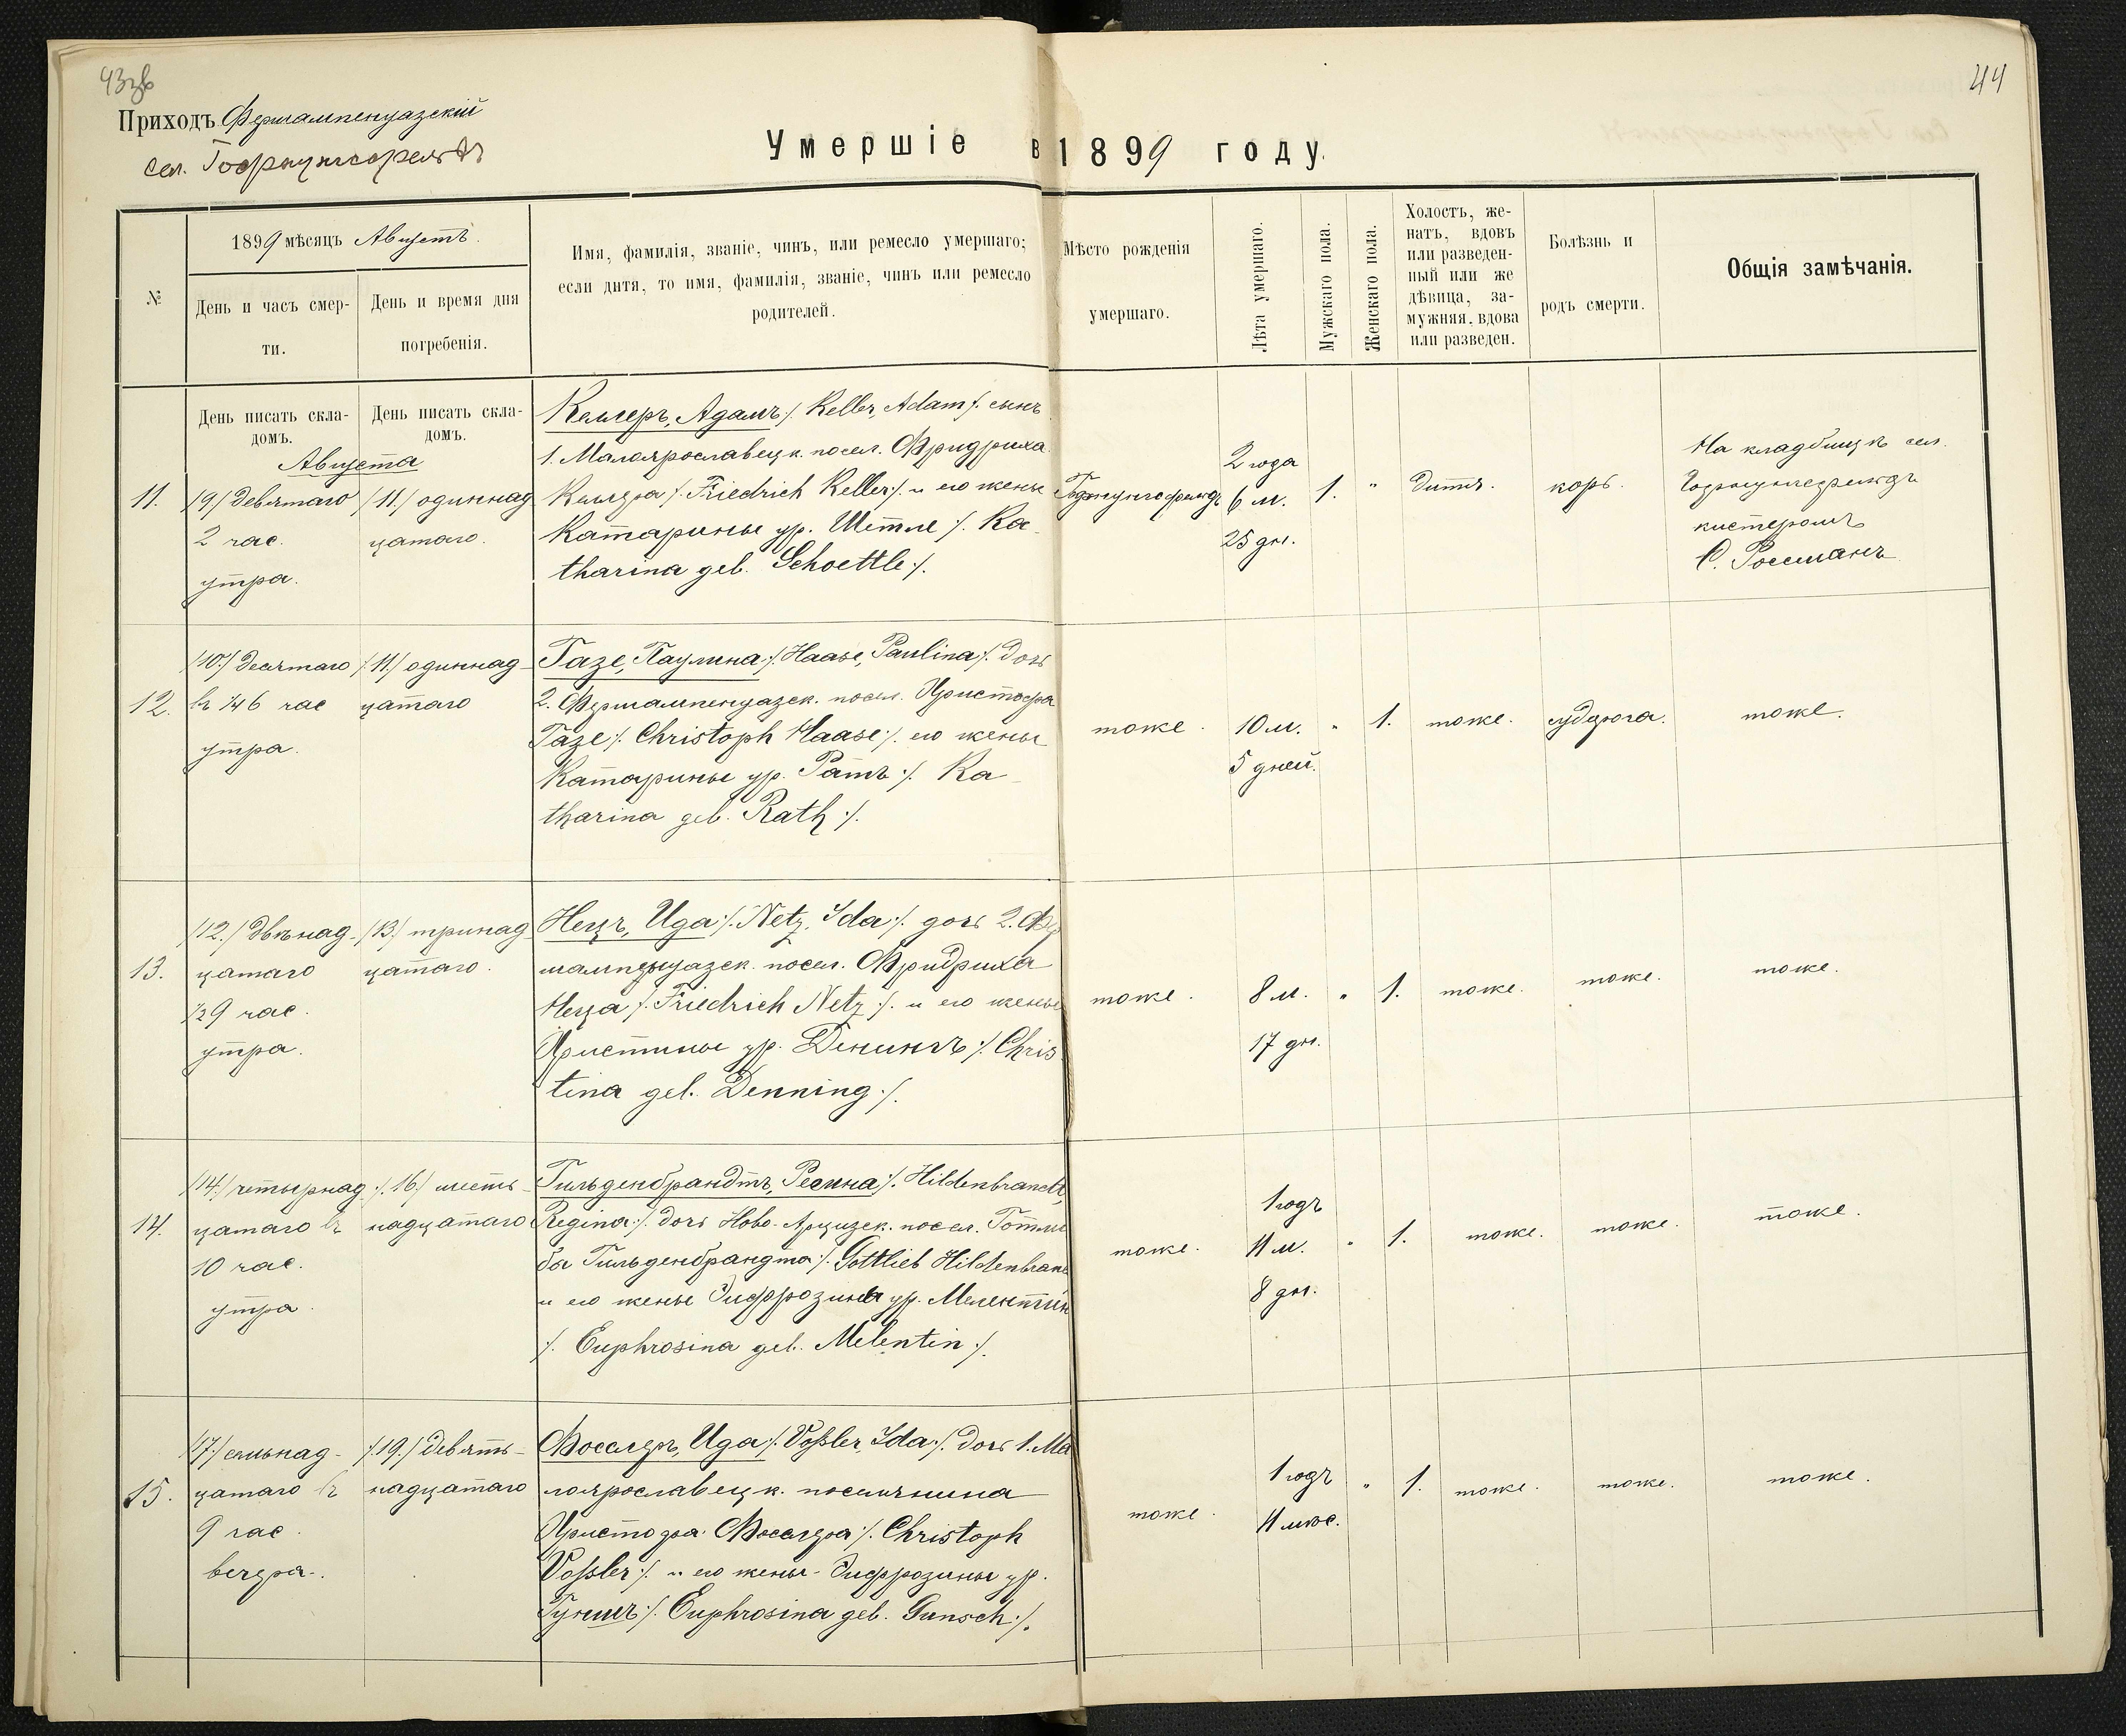 43 об
44
Приходъ Фершампенуазскій
сел. Гофнунгсфельдъ
Умершіе въ 1899 году.
№
1899 мѣсяцъ Августъ.
День и часъ смер-
ти.
День и время дня
погребенія.
Имя, фамилія, званіе, чинъ, или ремесло умершаго;
если дитя, то имя, фамилія, званіе, чинъ или ремесло
родителей.
Мѣсто рожденія
умершаго.
Лѣта умершаго.
Мужскаго пола.
Женскаго пола.
Холостъ, же-
натъ, вдовъ
или разведен-
ный или же
дѣвица, за-
мужняя, вдова
или разведен.
Болѣзнь и
родъ смерти.
Общія замѣчанія.
День писать скла-
домъ.
День писать скла-
домъ.
Августа
11.
/9/ девятаго
2 час.
утра.
/11./ одиннад-
цатаго.
Келлеръ, Адамъ ./. Keller, Adam ./. сынъ
1. Малоярославецк. посел. Фридриха
Келлера ./. Friedrich Keller ./. и его жены
Катарины ур. Шетле ./. Ka-
tharina geb. Schoettle ./.
Гофнунгсфельдъ
2 года
6 м.
25 дн.
1.
"
дитя.
корь.
На кладбищѣ сел.
Гофнунгсфельдъ
кистеромъ
С. Россманъ
12.
/10./ десятаго
въ 1/4 6 час
утра.
/11./ одиннад-
цатаго
Газе, Паулина ./. Haase, Paulina ./. дочь
2. Фершампенуазск. посел. Христофа
Газе ./. Christoph Haase ./. его жены
Катарины ур. Ратъ ./. Ka-
tharina geb. Rath ./.
тоже.
10 м.
5 дней.
"
1.
тоже.
судорога.
тоже.
13.
/12./ двѣнад-
цатаго
1/2 9 час.
утра.
/13./ тринад-
цатаго.
Нецъ, Ида ./. Netz, Ida ./. дочь 2. Фер
шампенуазск. посел. Фридриха
Неца ./. Friedrich Netz ./. и его жены
Христины ур. Денингъ ./. Chris
tina geb. Denning ./.
тоже.
8 м.
17 дн.
"
1.
тоже.
тоже.
тоже.
14.
/14./ четырнад-
цатаго въ
10 час.
утра.
./. 16./ шест-
надцатаго
Гильденбрандтъ, Регина ./. Hildenbrandt,
Regina ./. дочь Ново-Арцизск. посел. Готтли
ба Гильденбрандта ./. Gottlieb Hildenbrand
и его жены Эйфрозины ур. Мелентин
./. Euphrosina geb. Melentin ./.
тоже.
1 годъ
11 м.
8 дн.
"
1.
тоже.
тоже.
тоже.
15.
/17./ семнад-
цатаго въ
9 час.
вечера.
./.19./ девят-
надцатаго
Фосслеръ, Ида ./. Voßler, Ida ./. дочь 1. Ма
лоярославецк. поселянина
Христофа Фосслера ./. Christoph
Voßler ./. и его жены Эйфрозины ур.
Гуншъ ./. Euphrosina geb. Gunsch ./.
тоже.
1 годъ
11 мѣс.
"
1.
тоже.
тоже.
тоже.